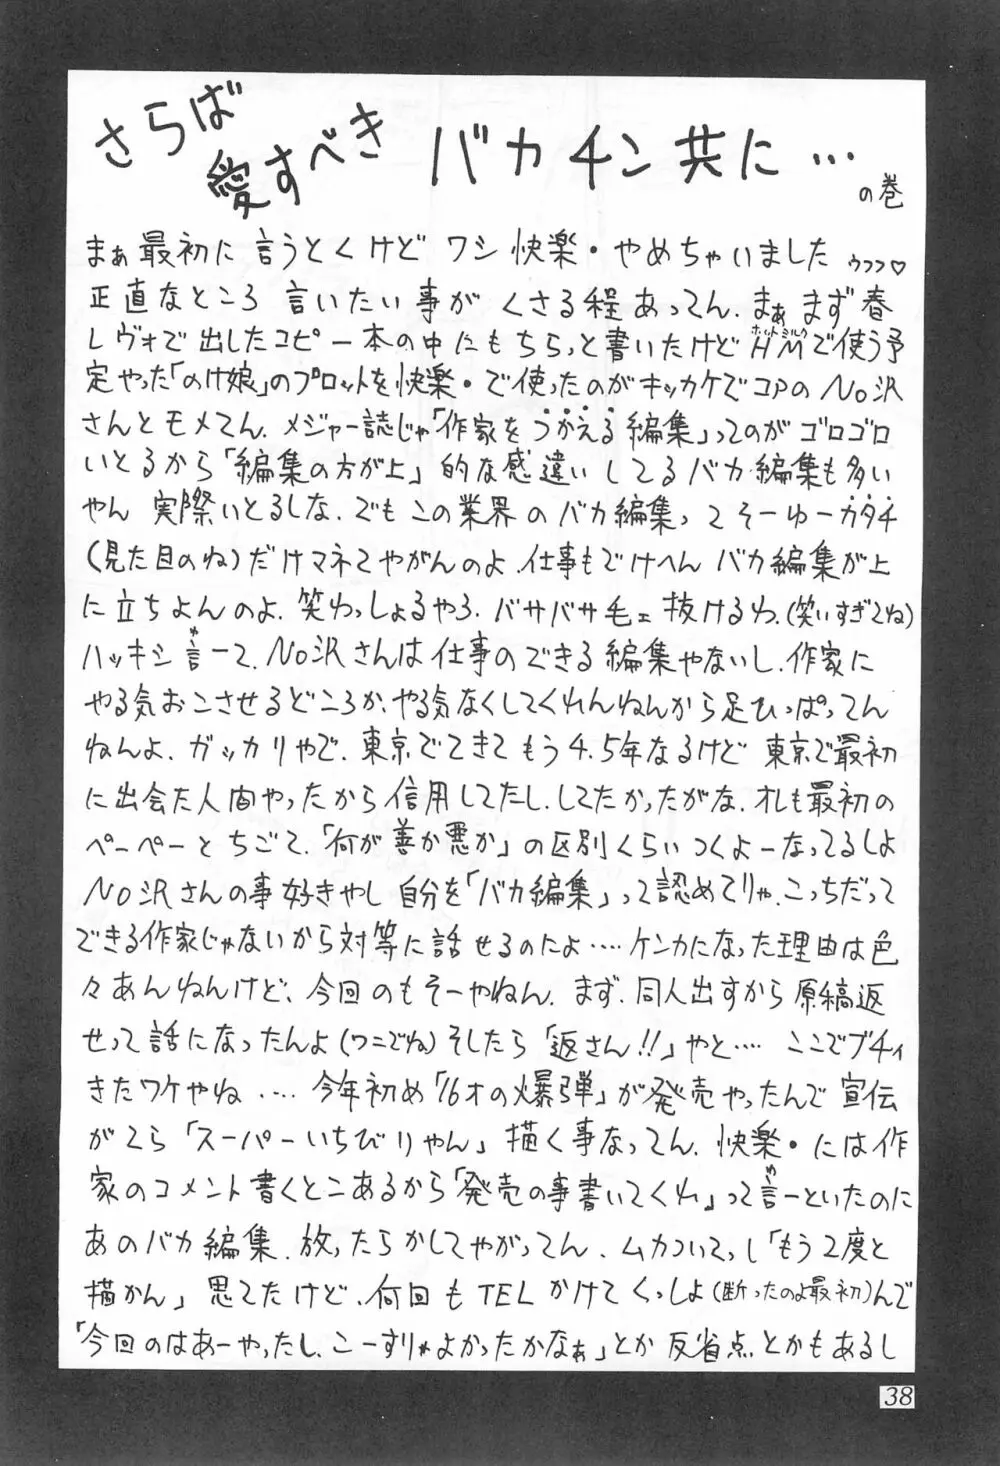 さらば
愛すべき バカチン共に…
の巻
まぁ最初に言うとくけど ワシ 快楽・やめちゃいました ゥフフ♡
正直なところ 言いたい事が くさる程あってん. まぁまず春
レヴォで出したコピー本の中にもちらっと書いたけどHMで使う予
ホットミルク
定やった「のけ娘」のプロットを快楽・で使ったのがキッカケでコアのNo沢
さんとモメてん. メジャー誌じゃ「作家をつかえる編集」ってのがゴロゴロ
いとるから「編集の方が上」的な感違いしてるバカ編集も多い
やん 実際いとるしな. でもこの業界のバカ編集ってそーゆーカタチ
(見た目のね)だけマネてやがんのよ. 仕事もでけへん バカ編集が上
に立ちよんのよ. 笑わっしょるやろ. バサバサ毛ェ抜けるわ.(笑いすぎてね)
ハッキシ言ーて. No沢さんは仕事のできる編集やないし. 作家に
やる気おこさせるどころか. やる気なくしてくれんねんから足ひっぱってん
ねんよ. ガッカリやで. 東京でてきてもう4.5年なるけど 東京で最初
に出会た人間やったから信用してたし. してたかったがな. オレも最初の
ペーペーとちごて.「何が善か悪か」の区別くらいつくよーなってるしよ
No沢さんの事好きやし 自分を「バカ編集」って認めてりゃ. こっちだって
できる作家じゃないから対等に話せるのによ…. ケンカになった理由は色
々あんねんけど、今回のもそーやねん. まず. 同人出すから原稿返
せって話になったんよ(ワニでね)そしたら「返さん!!」やと…. ここでブチィ
きたワケやね ・… 今年初め「16才の爆弾」が発売やったんで宣伝
がてら「スーパーいちびりやん」描く事なってん. 快楽・には作
家のコメント書くとこあるから「発売の事書いてくれ」って言ーといたのに
あのバカ編集. 放ったらかしてやがってん. ムカついてっし「もう2度と
描かん」思てたけど. 何回もTELかけてくっしよ(断ったのよ最初)んで
「今回のはあーやったし. こーすりゃよかったかなぁ」とか反省点とかもあるし
38